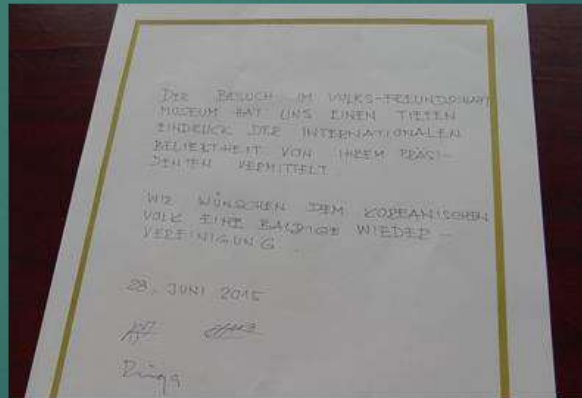 DER BESUCH IM VOLKS-FREUNDSCHAFT
MUSEUM HAT UNS EINEN TIEFEN
EINDRUCK DER INTERNATIONALEN
BELIEBTHEIT VON IHREM PRÄSI-
DENTEN VERMITTELT
WIR WÜNSCHEN DEM KOREANISCHEN
VOLK EINE BALDIGE WIEDER-
VEREINIGUNG.
28. JUNI 2015